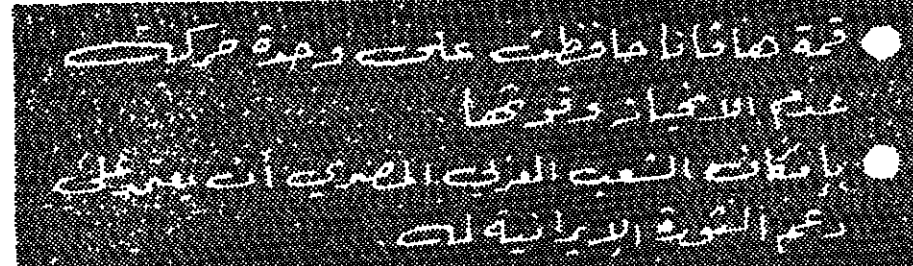 ● قمة هافانا حافظت على وحدة حركة
عدم الانحياز وقوتها
● بإمكان الشعب العربي المصري أن يعتمد على
دعم الثورة الإيرانية له